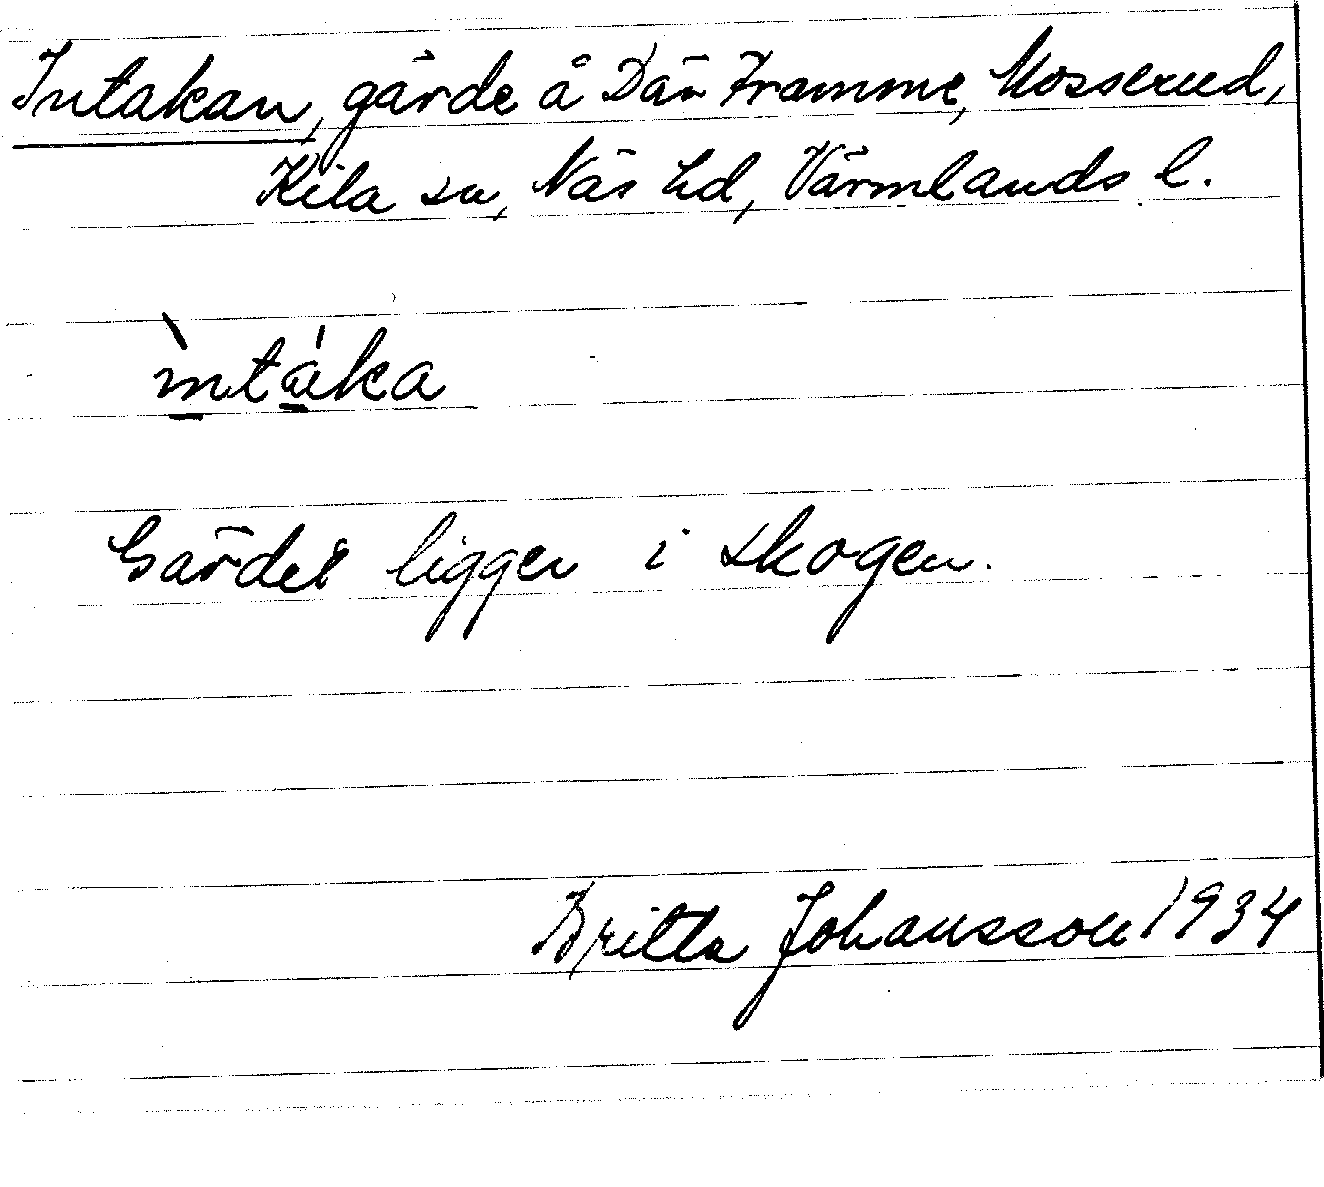 Intakan, gärde å Där Framme, Mosserud,
Kila sn, Näs hd, Värmlands l.
ìntáka
Gärdet ligger i skogen.
Britta Johansson 1934